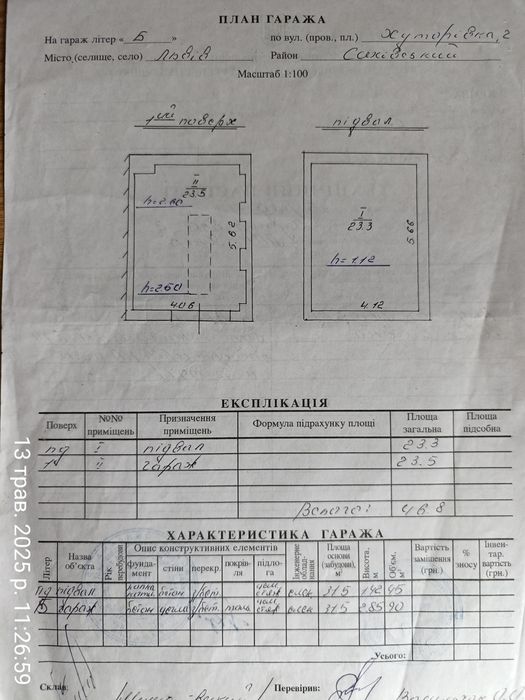 ПЛАН ГАРАЖА
На гараж літер « Б » по вул. (пров., пл.) Хуторівка, 2
Місто (селище, село) Львів Район Сихівський
Масштаб 1:100
1ий поверх підвал
II
23.5
h=2.80
5.82
h=2.60
4.06
I
23.3
5.66
h=1.12
4.12
ЕКСПЛІКАЦІЯ
Поверх №№ приміщень Призначення приміщень Формула підрахунку площі Площа загальна Площа підсобна
пд I підвал 23.3
1й II гараж 23.5
Всього: 46.8
ХАРАКТЕРИСТИКА ГАРАЖА
Літер Назва об'єкта Рік перебудови Опис конструктивних елементів фундамент стіни перекр. покрівля підлога Інженерне обладнання Площа основи (забудови), м² Висота, м Об'єм, м³ Вартість заміщення (грн.) % зносу Інвентар. вартість (грн.)
пд підвал бетон з/бет. цем. стяж 31.5 1.42 45
Б гараж бетон цегла з/бет. цем. стяж 31.5 2.85 90
Усього:
Склав: Перевірив:
13 трав. 2025 р. 11:26:59